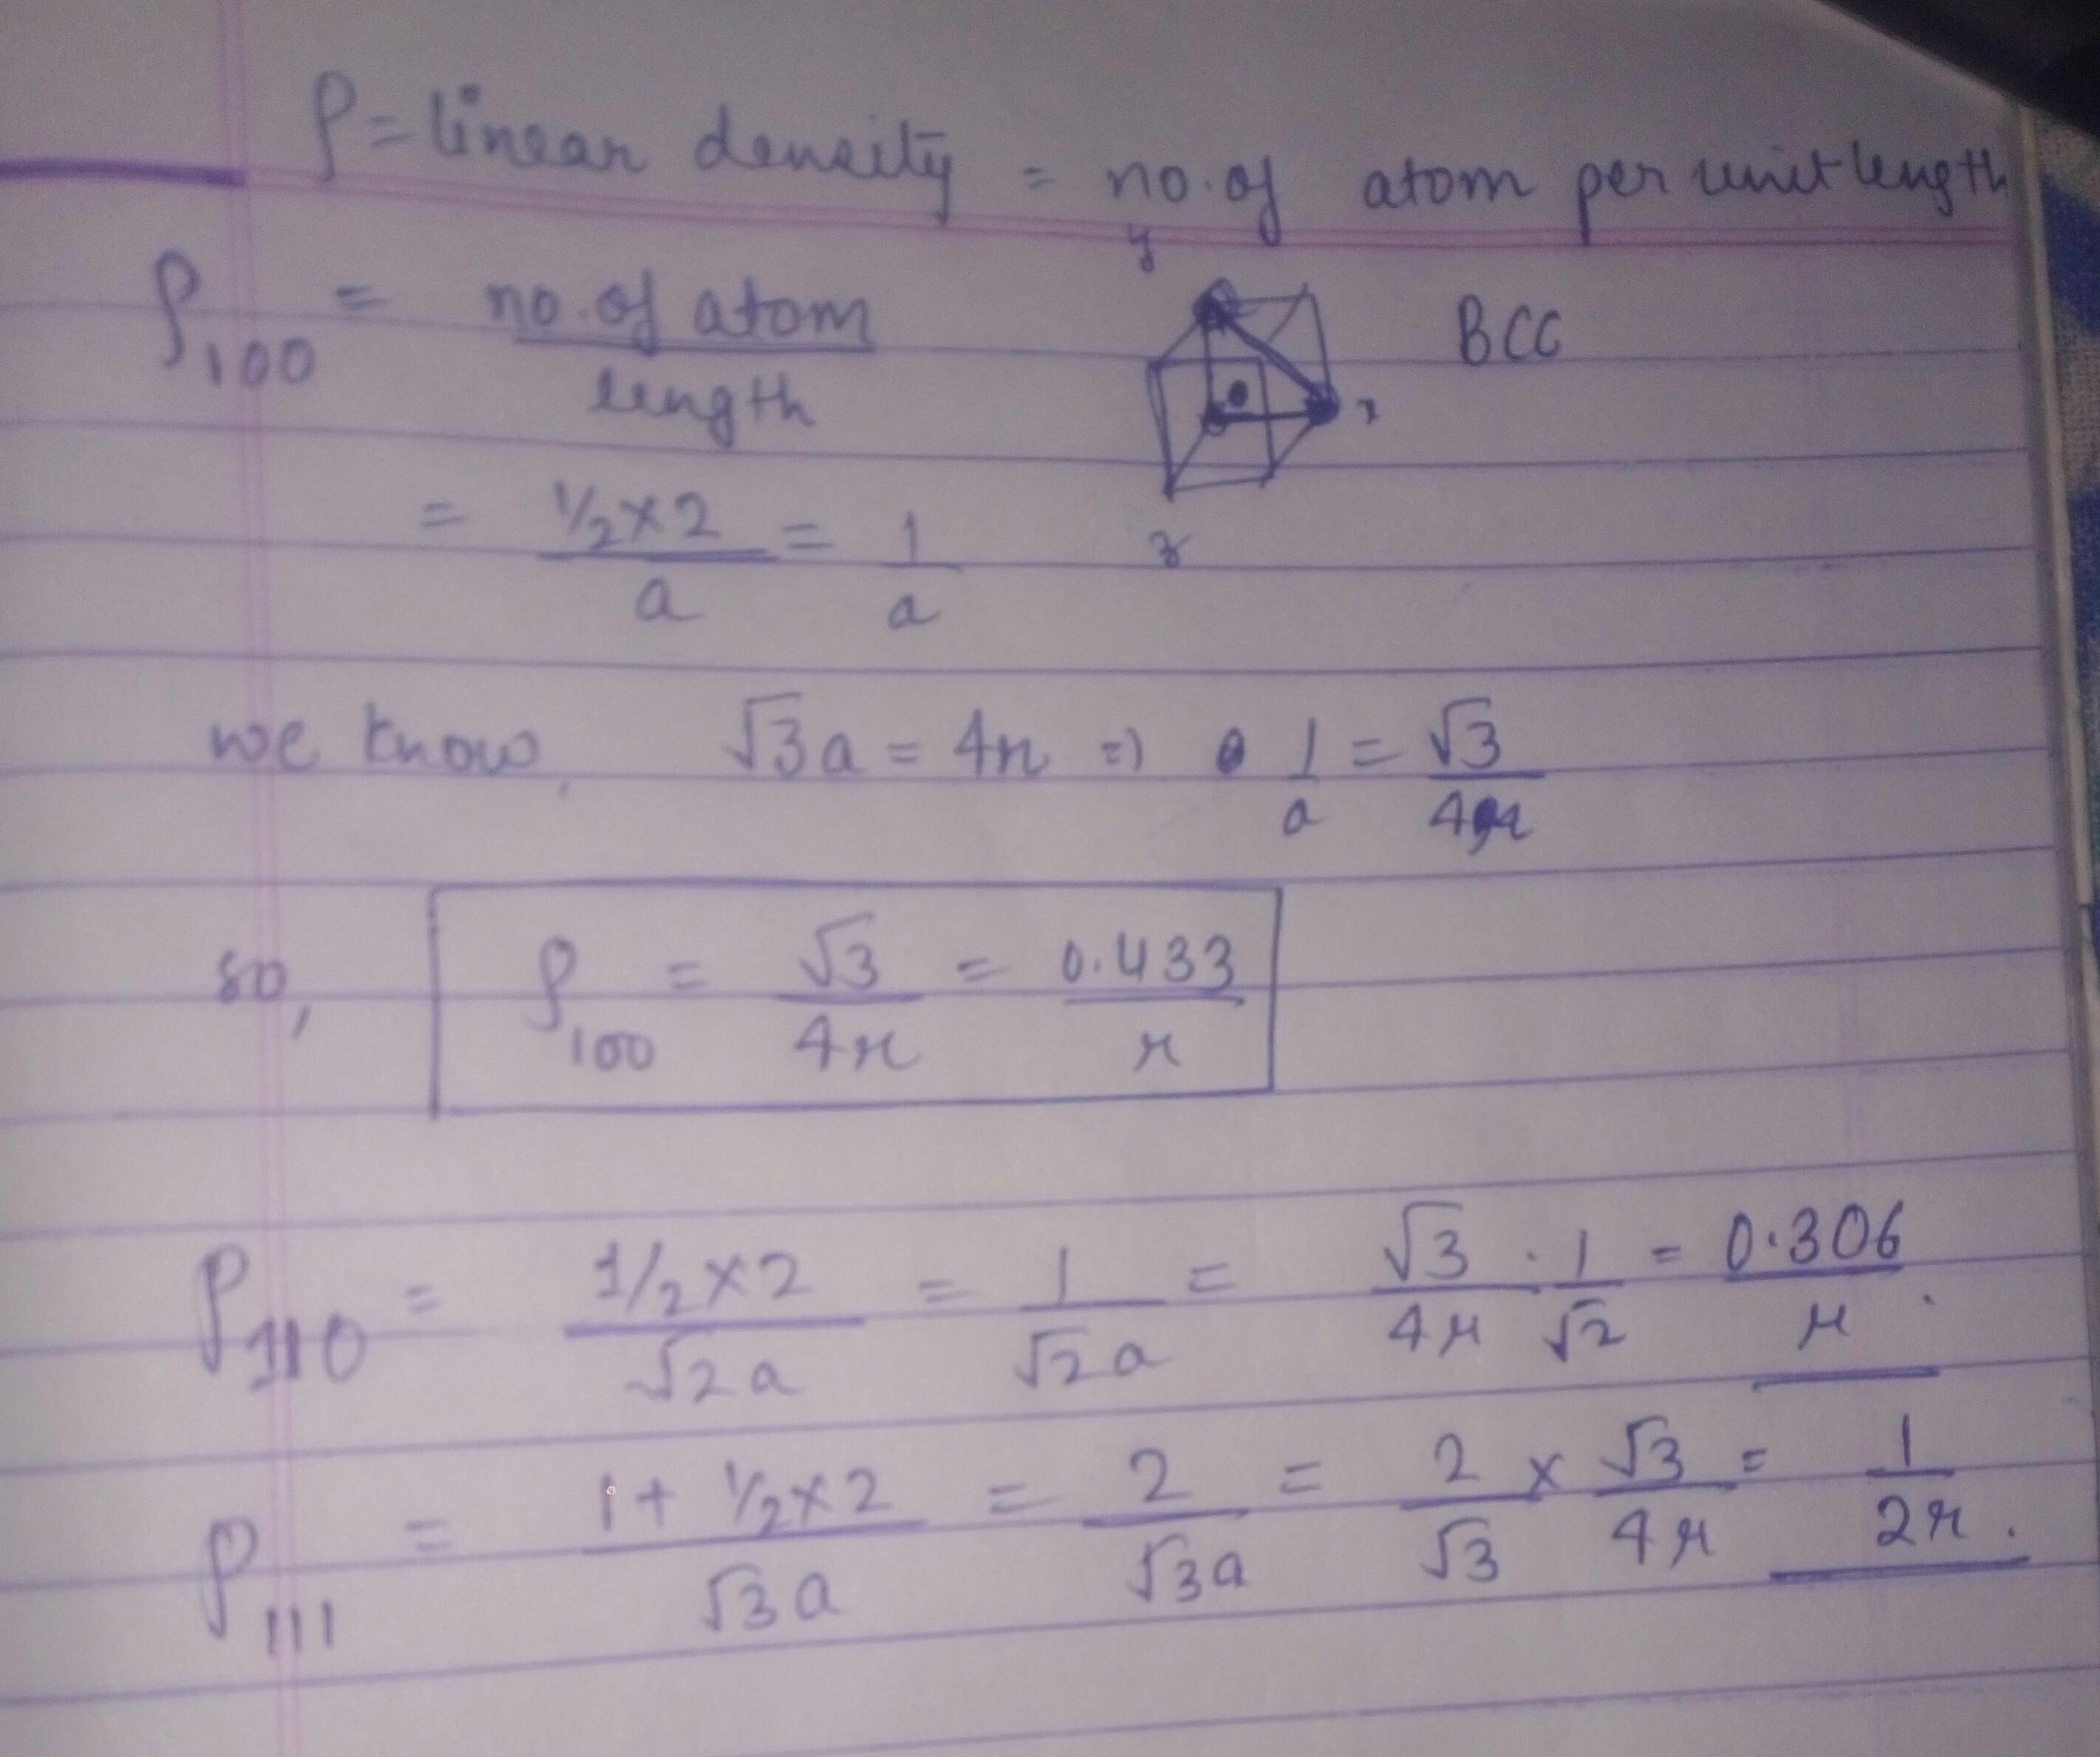 ρ = linear density = no. of atom per unit length
ρ₁₀₀ = no. of atom / length
y
BCC
x
= ½×2 / a = 1 / a
z
we know, √3a = 4r ⇒ 1/a = √3/4r
so, ρ₁₀₀ = √3/4r = 0.433/r
ρ₁₁₀ = 1/2×2 / √2a = 1/√2a = √3/4r · 1/√2 = 0.306/r.
ρ₁₁₁ = 1+½×2 / √3a = 2/√3a = 2/√3 × √3/4r = 1/2r.